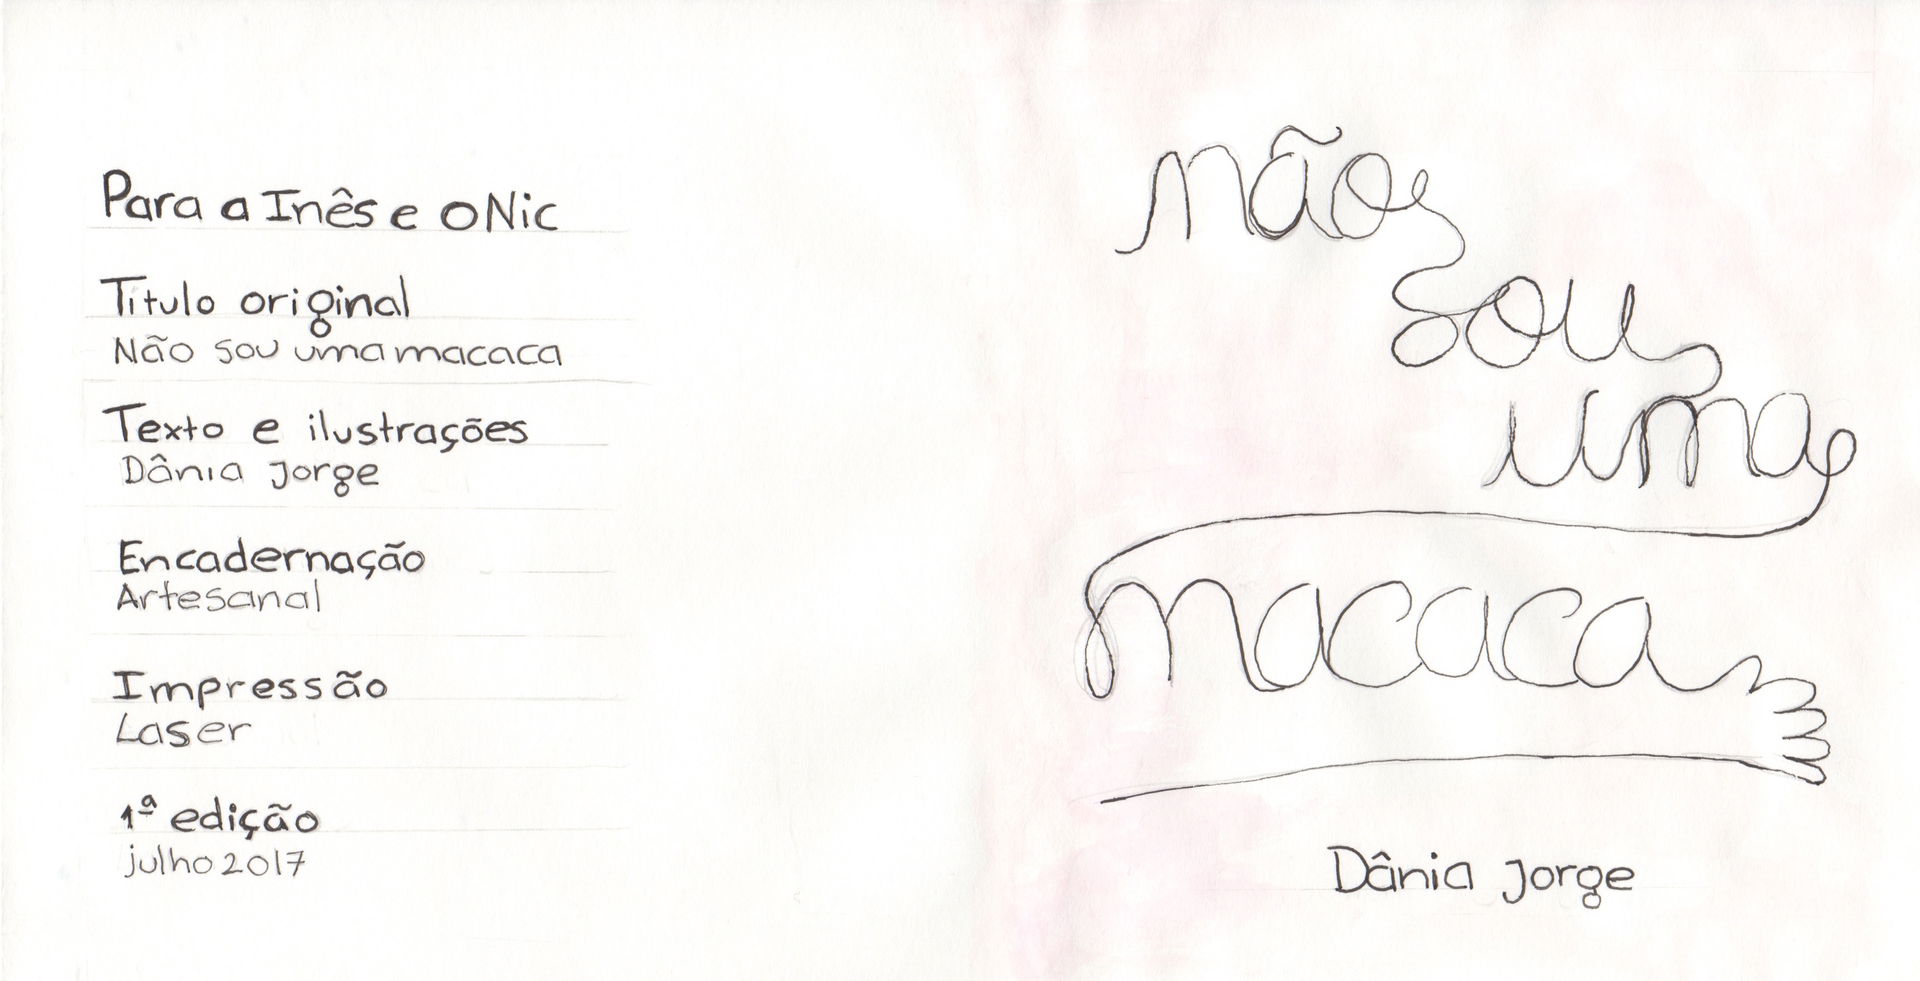 Para a Inês e o Nic
Título original
Não sou uma macaca
Texto e ilustrações
Dânia Jorge
Encadernação
Artesanal
Impressão
Laser
1ª edição
julho 2017
não
sou
uma
macaca
Dânia Jorge